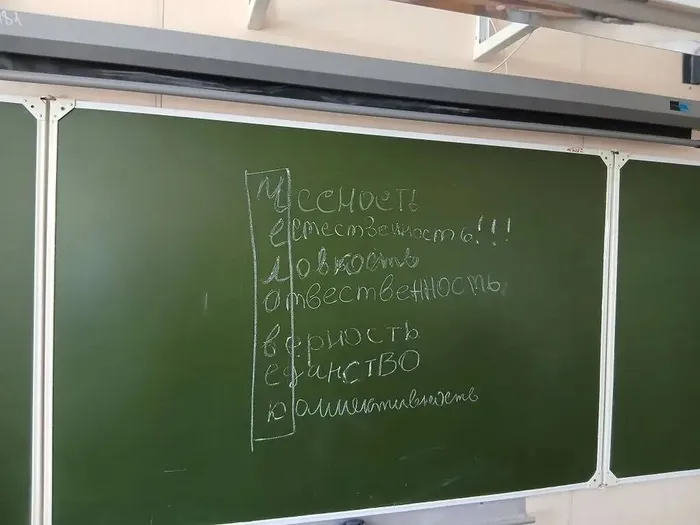 Чесность
естественность!!!
ловкость
отвественность
верность
единство
коллективность